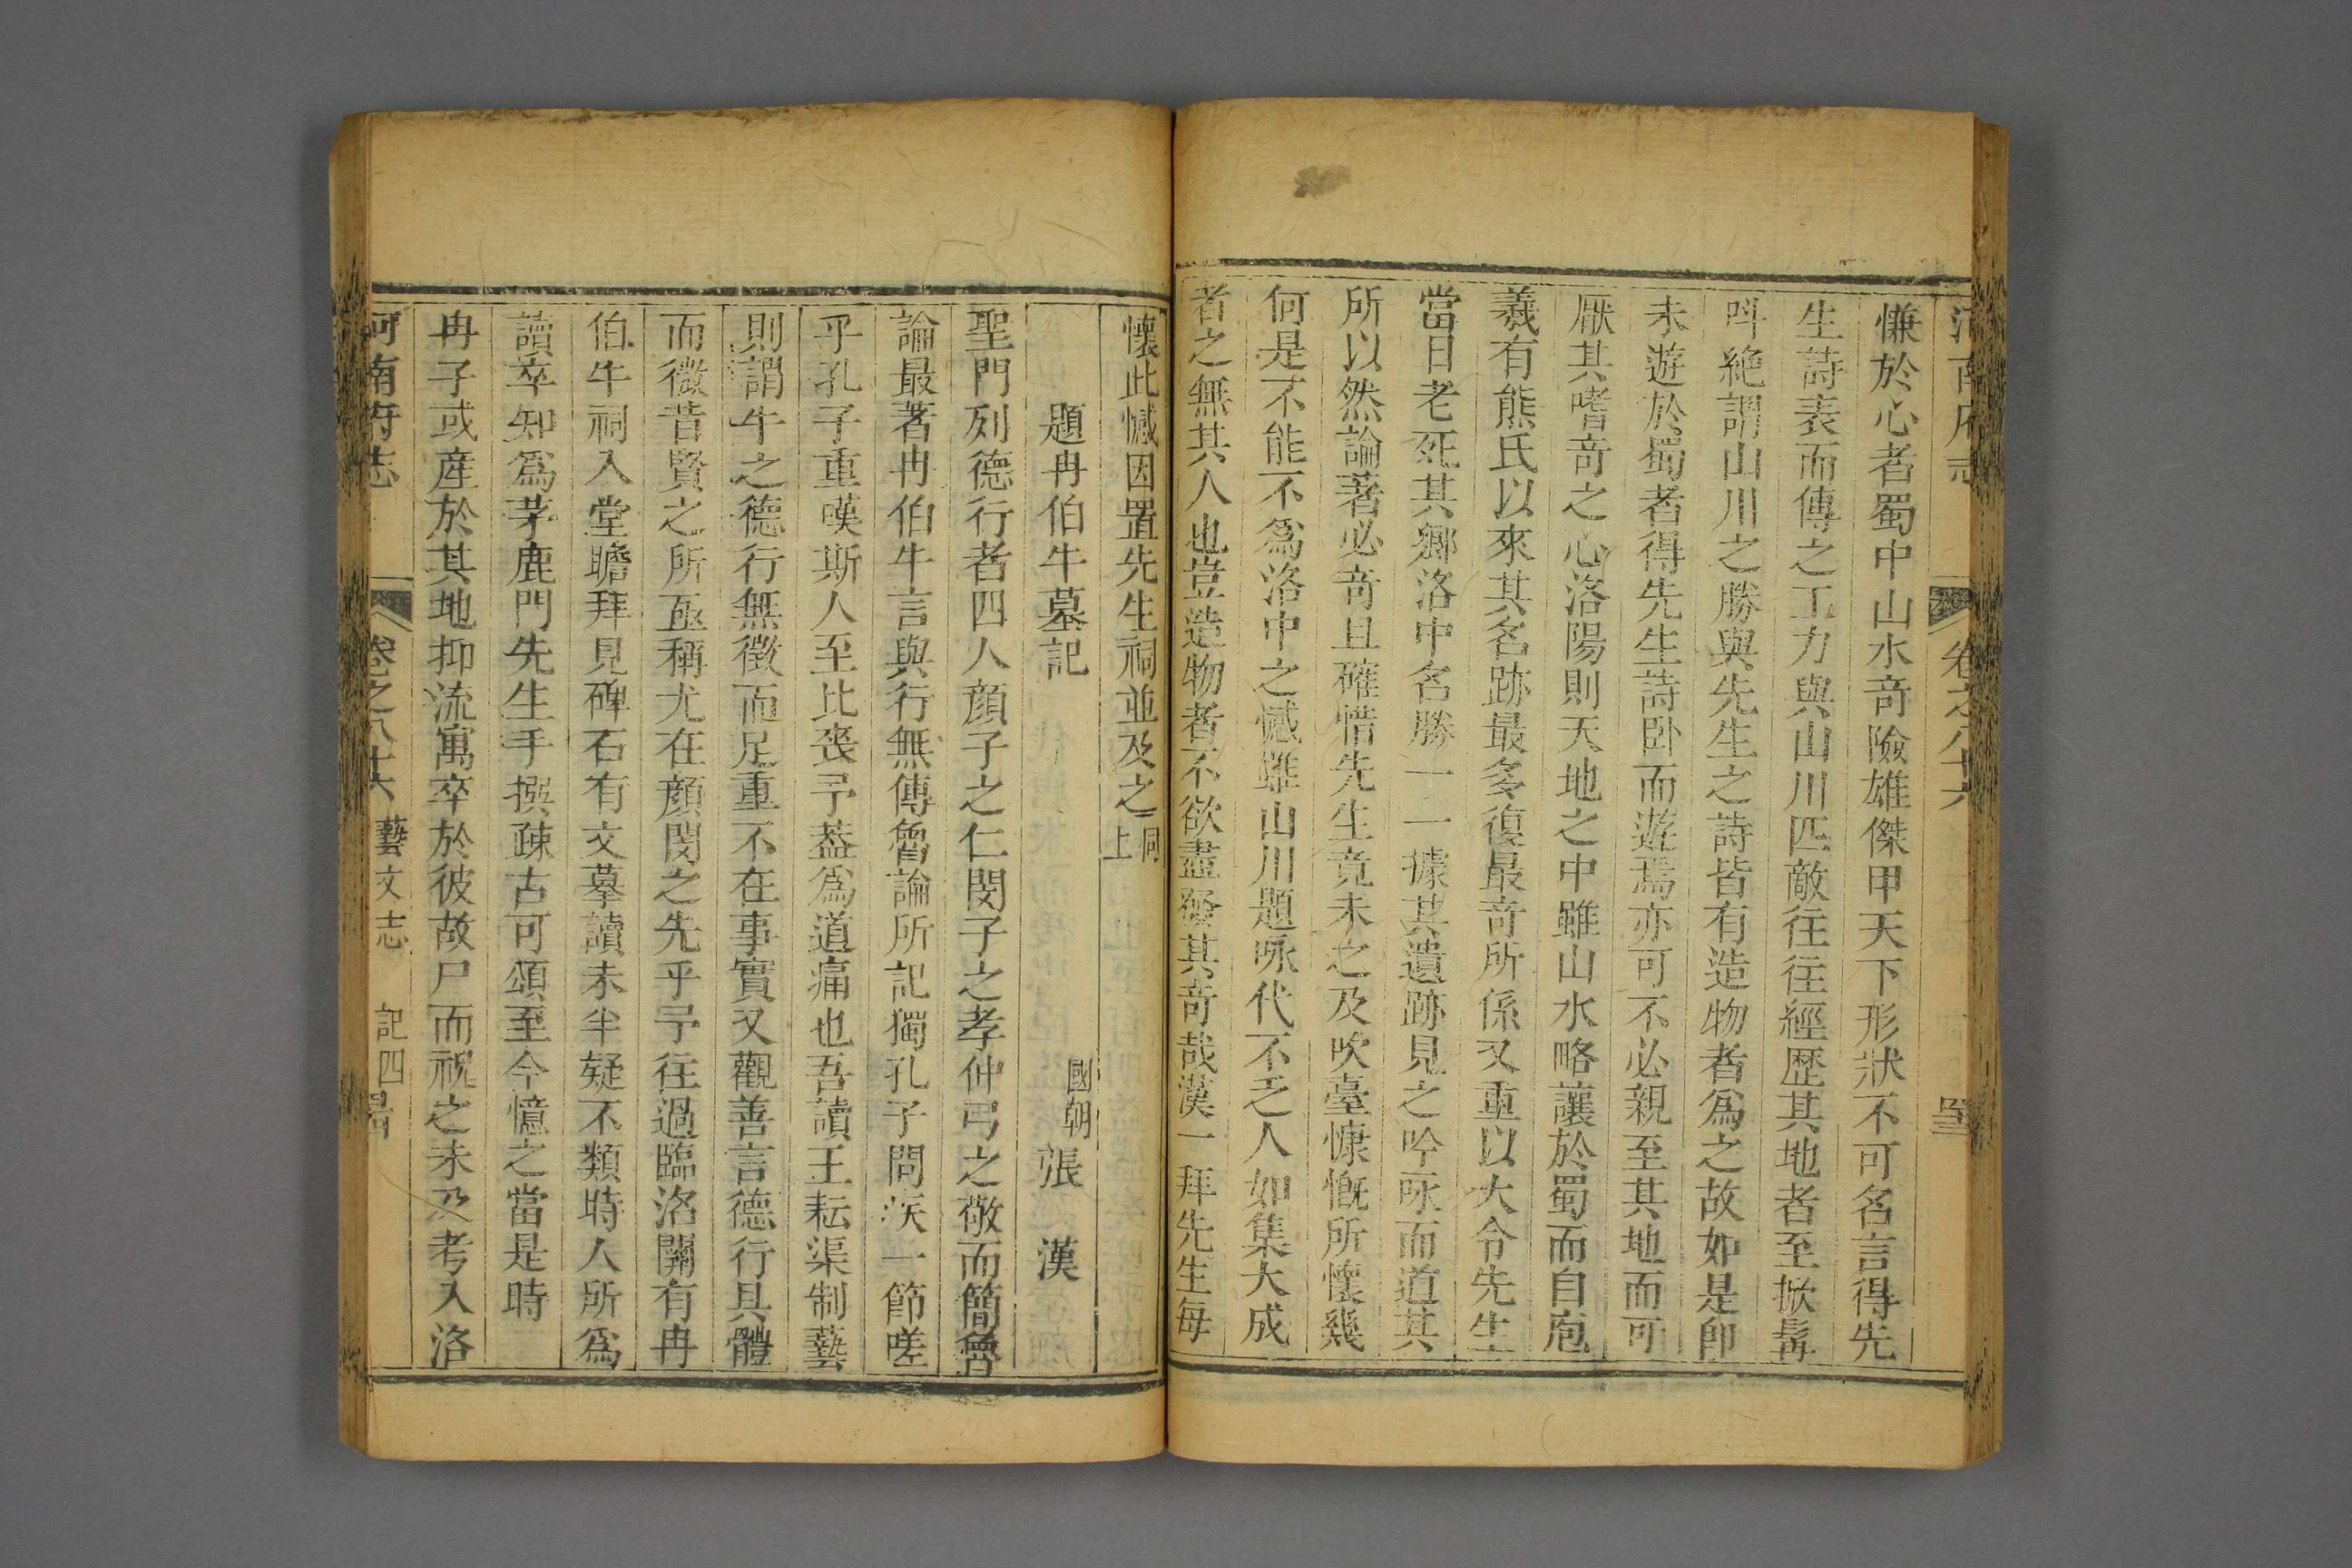 河南府志 卷之八十六
慊於心者蜀中山水竒險雄傑甲天下形狀不可名言得先
生詩表而傳之工力與山川匹敵往往經歷其地者至掀髯
呌絶謂山川之勝與先生之詩皆有造物者爲之故如是卽
未遊於蜀者得先生詩卧而遊焉亦可不必親至其地而可
厭其嗜竒之心洛陽則天地之中雖山水略讓於蜀而自庖
羲有熊氏以來其名跡最多復最竒所係又重以大令先生
當日老死其鄉洛中名勝一一據其遺跡見之吟咏而道其
所以然論著必竒且確惜先生竟未之及吹臺慷慨所懷幾
何是不能不爲洛中之憾雖山川題咏代不乏人如集大成
者之無其人也豈造物者不欲盡發其竒哉漢一拜先生每
懷此憾因置先生祠並及之同上
題冉伯牛墓記 國朝張漢
聖門列德行者四人顔子之仁閔子之孝仲弓之敬而簡魯
論最著冉伯牛言與行無傳魯論所記獨孔子問疾一節嗟
乎孔子重嘆斯人至比喪予葢爲道痛也吾讀王耘渠制藝
則謂牛之德行無徴而足重不在事實又觀善言德行具體
而微昔賢之所亟稱尤在顔閔之先乎予往過臨洛關有冉
伯牛祠入堂瞻拜見碑石有文摹讀未半疑不類時人所爲
讀卒知爲茅鹿門先生手撰疎古可頌至今憶之當是時
冉子或産於其地抑流寓卒於彼故尸而祝之未及考入洛
河南府志 卷之八十六 藝文志 記四